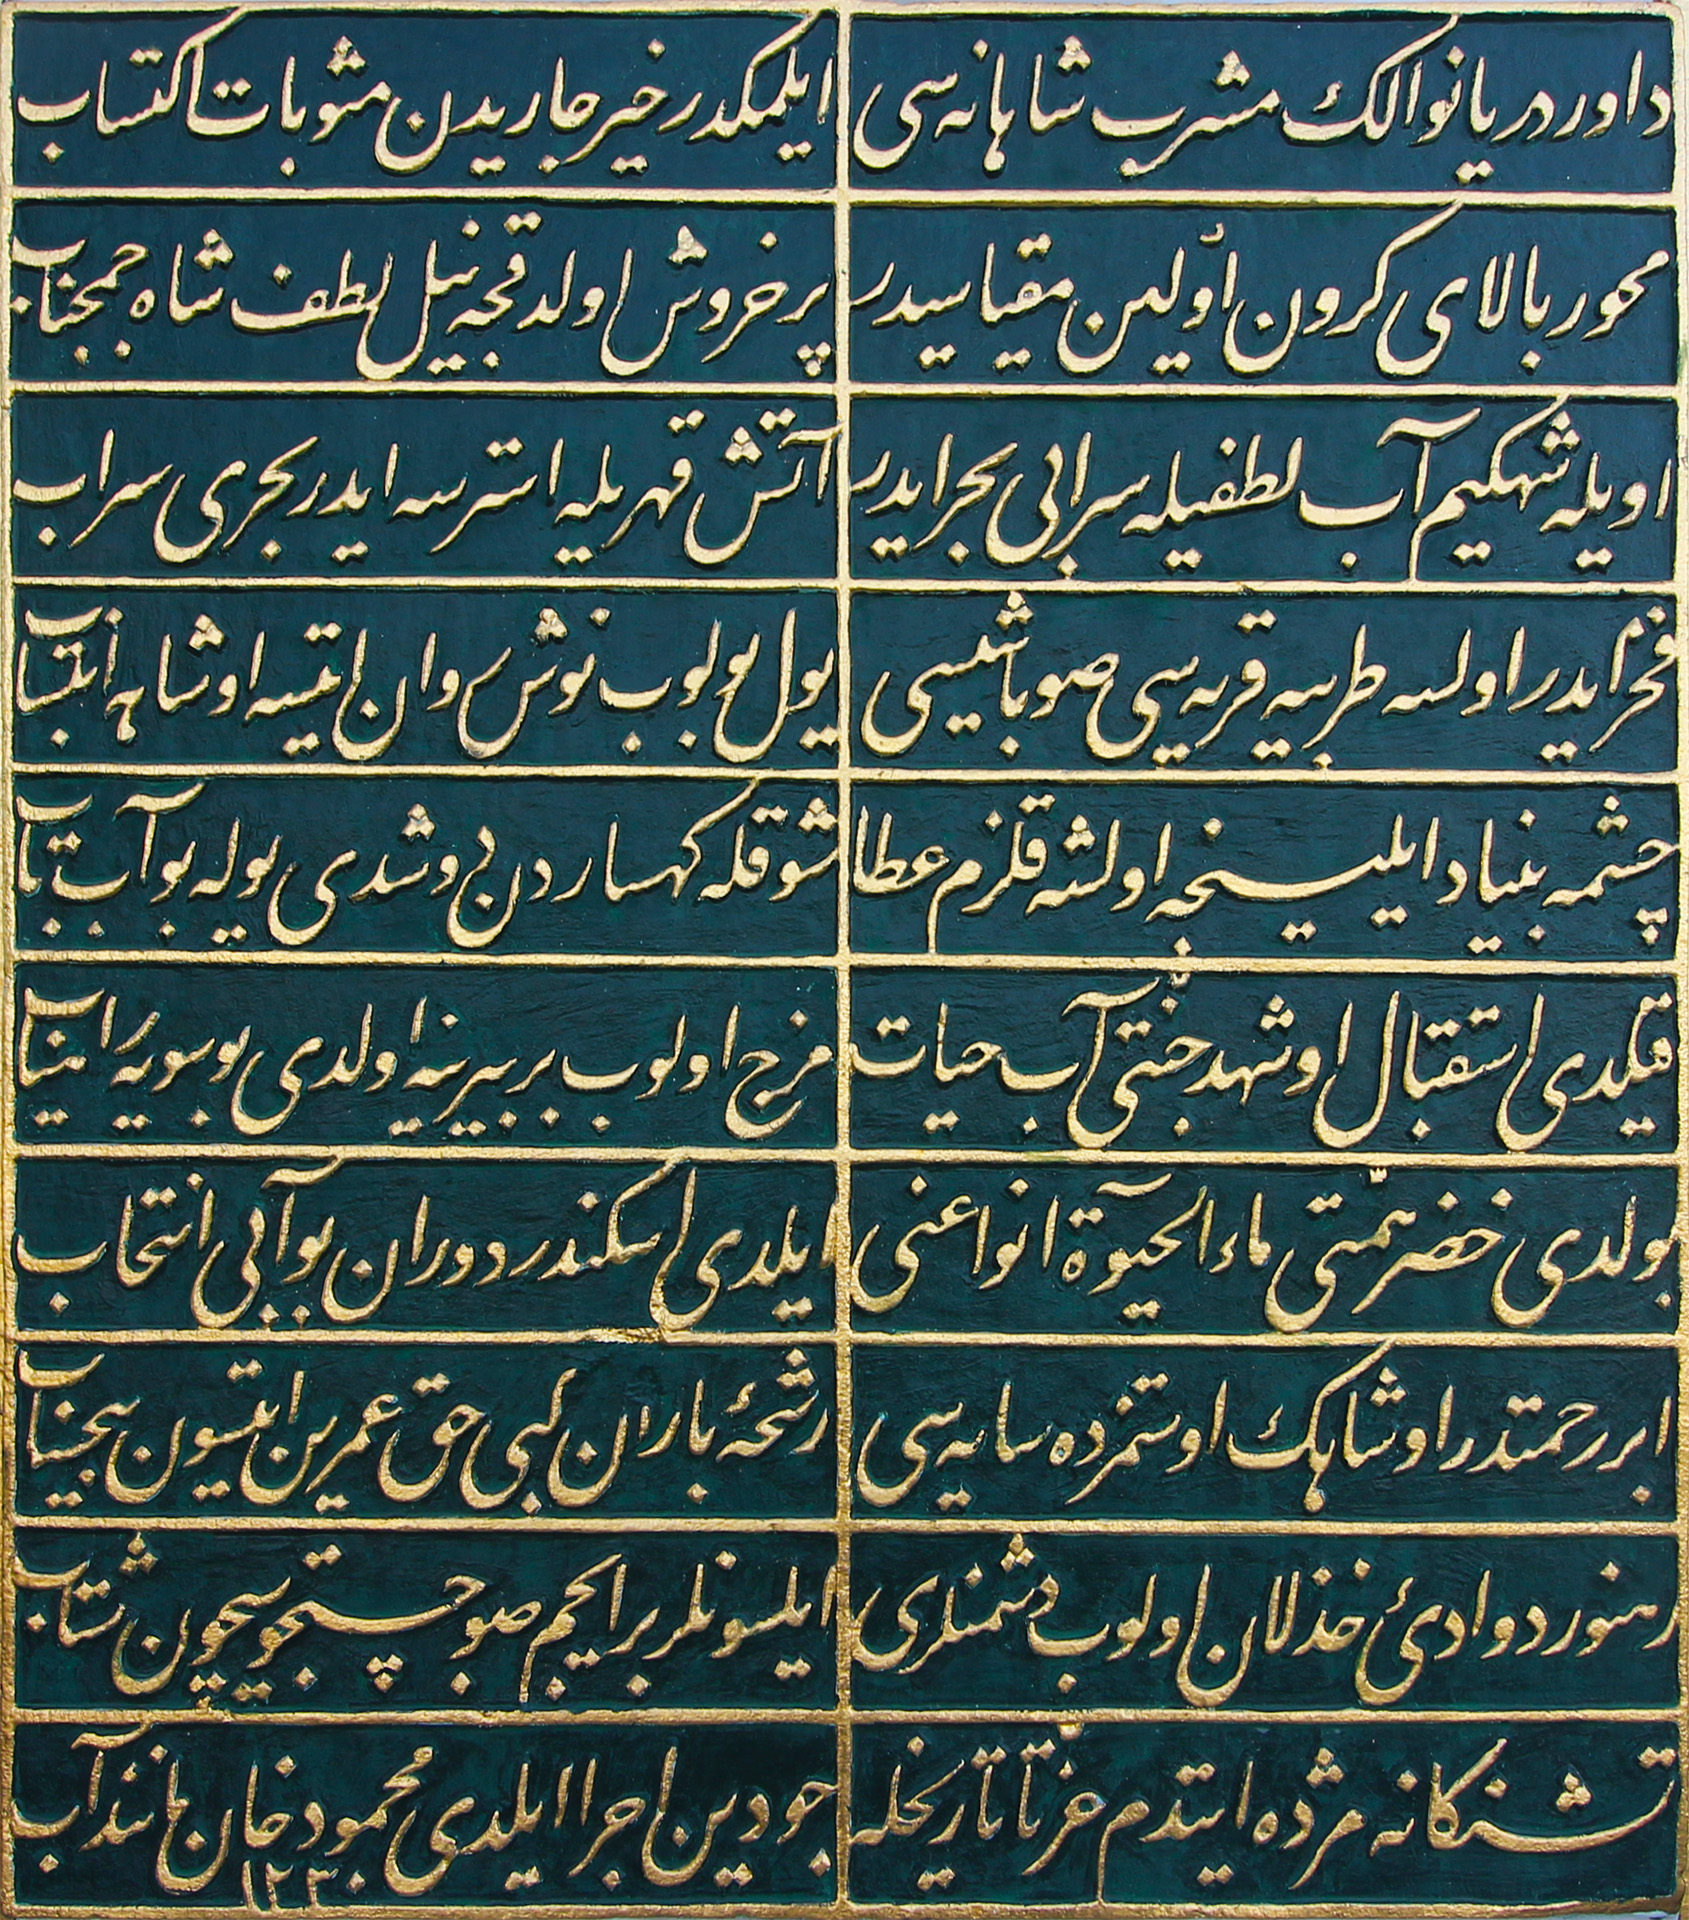 داور دریا نوالك مشرب شاهانه سی
ایلمکدر خیر جاریدن مثوبات اکتساب
محور بالای کرون اوّلین مقیاسیدر
پر خروش اولدقجه نیل لطف شاه جمجناب
اویله شهکیم آب لطفیله سرابی بحر ایدر
آتش قهریله استرسه ایدر بحری سراب
فخر ایدر اولسه طربیه قریه سی صوباشیسی
یول بولوب نوش وان ایتسه اوشاهه انتساب
چشمه بنیاد ایلینجه اولشه قلزم عطا
شو قله کهساردن دوشدی یوله بو آب تاب
قیلدی استقبال اوشهد جنّتی آب حیات
مزج اولوب بربیرینه اولدی بوسویه رامیاب
بولدی خضر همّتی ماء الحیوة انواعنی
ایلدی اسکندر دوران بو آبی انتخاب
ابر رحمتدر اوشاهك اوستمزده سایه سی
رشحۀ باران کبی حق عمرین ایتسون بیحساب
رهنورد وادئ خذلان اولوب دشمنلری
ایلسونلر بر ایچم صو جستجوسیچون شتاب
تشنکانه مژده ایتدم عزّتا تاریخله
جودین اجرا ایلدی محمود خان مانند آب
۱۲۳۰